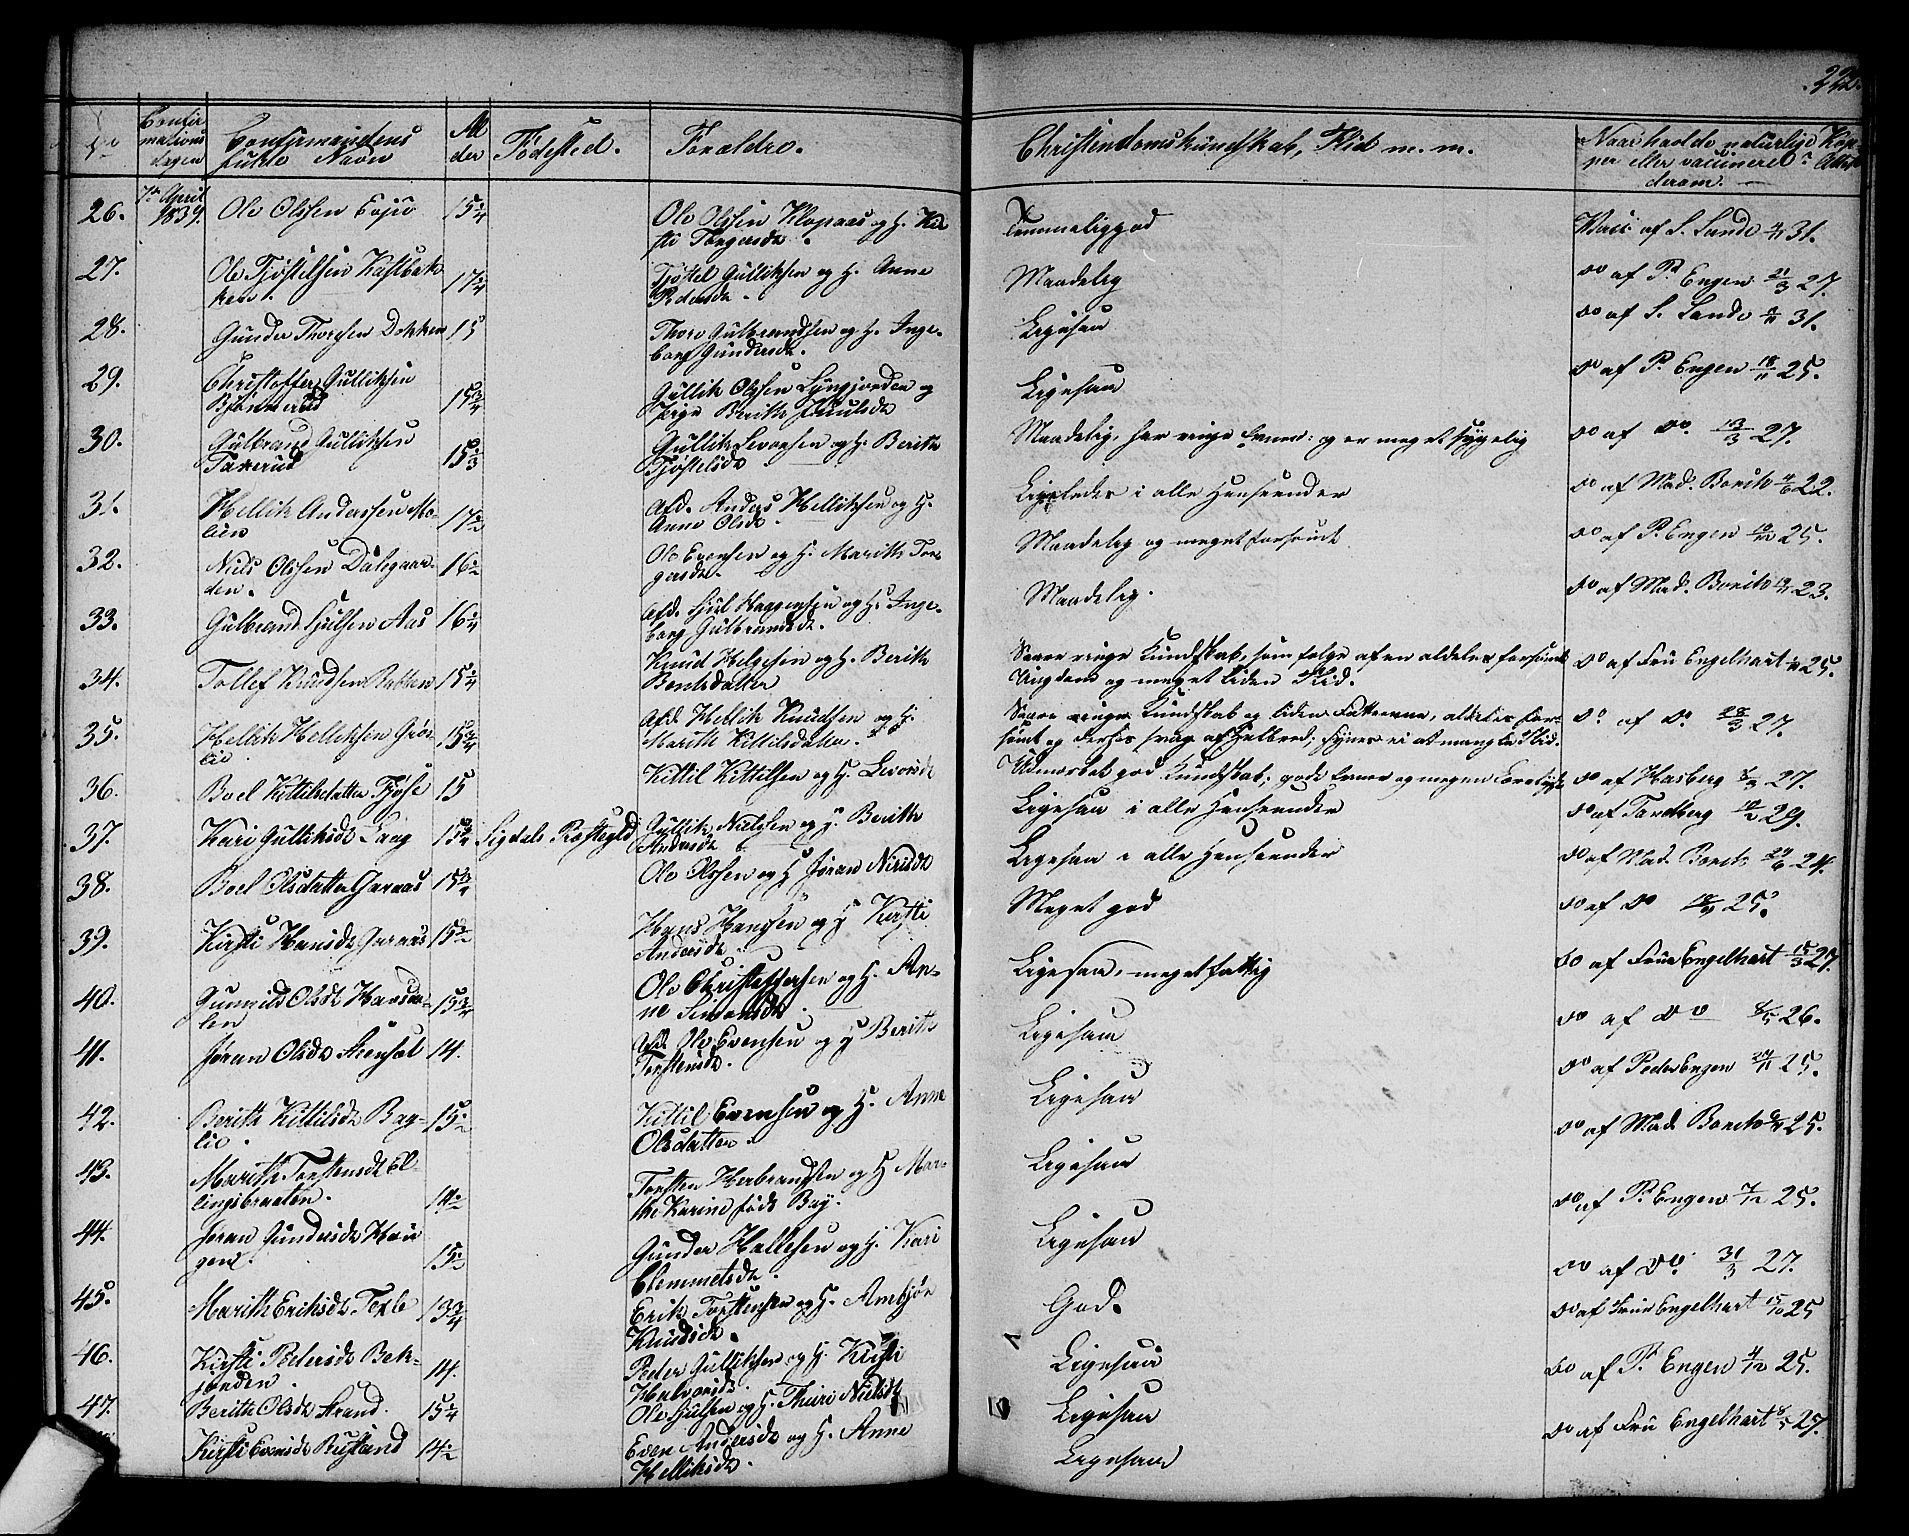 222.
No
Confir
mations
dagen
Confirmandens
fulde Navn
Al
der
Fødested.
Forældre.
Christendomskundskab, Flid m. m.
Naar havde naturlige Kop
per eller vaccineret? Attest
derom.
26. 7de April 1839. Ole Olssen Eeju 15 1/4
Ole Olssen Klopaas og H. Kir
sti Torgersdr.
Temmelig god
Vacc. af S. Sande 31.
27. Ole Tjøstelsen Kastbak
ken. 17 1/4
Tjøstel Gulliksen og H. Anne
Pedersdr.
Maadelig
do af P. Engen 21/3 27.
28. Gunder Thoresen Dokken 15
Thore Gulbrandsen og H. Inge-
borg Gundersdr.
Ligesaa
do af S. Sande 31.
29. Christoffer Gulliksen
Bjønnerud 15 3/4
Gullik Olssen Lyngjorden og
Pige Berith Juulsdr
Ligesaa
do af P. Engen 18/11 25.
30. Gulbrand Gulliksen
Takerud 15
Gullik Levorsen og H. Berith
Tjøstelsdr.
Maadelig, har ringe Evner og er meget sygelig
do af do. 13/3 27.
31. Hellik Anderssen Mo-
lien 17 1/2
Afd. Anders Helliksen og H.
Anne Olsdr.
Ligeledes i alle Henseender
do af Mad. Borito 22.
32. Niels Olssen Dalegaar-
den. 16 1/2
Ole Evensen og H. Marith Tor
gersdr.
Maadelig og meget forsømt
do af P. Engen 25.
33. Gulbrand Juulsen Aas 16 1/4
Afd. Juul Haggensen og H. Inge-
borg Gulbrandsdr.
Maadelig.
do af Mad. Borito 23.
34. Tollef Knudsen Ratten 15 1/4
Knud Helgesen og H. Berith
Bentsdatter
Saare ringe Kundskab, som følge af en aldeles forsømt
Ungdom og meget liden Flid.
do af Fru Engelhart 25.
35. Hellik Helliksen Grøs-
lie 15 3/4
Afd. Hellik Knudsen og H.
Marith Kittilsdatter.
Saare ringe Kundskab og liden Fatteevne, aldeles for-
sømt og derhos svag af Helbred; synes ei at mangle Flid.
do af do. 28/3 27.
36. Boel Kittilsdatter Tjøse 15
Kittil Kittilsen og H. Levordr
Udmærket god Kundskab; gode Evner og megen Lærelyst
do af Hasberg 8/3 27.
37. Kari Gulliksdr Laag 15 3/4 Sigdals Præstegjld
Gullik Nielssen og H. Berith
Andersdr
Ligesaa i alle Henseender
do af Tandberg 29.
38. Boel Olsdatter Garaas 15 3/4
Ole Olssen og H. Jøran Nielsdr
Ligesaa i alle Henseender
do af Mad. Borito 24.
39. Kirsti Hansdr Garaas 15 1/2
Hans Hanssen og H. Kirsti
Andersdr
Meget god
do af do 25.
40. Gunnild Olsdr Haavda-
len 15 3/4
Ole Christophersen og H. An-
ne Simonsdr.
Ligesaa, meget fattig
do af Frue Engelhart 15/3 27.
41. Jøran Olsdr Steenset 14.
Afd. Ole Evensen og H. Berith
Torstensdr.
Ligesaa
do af do 8/5 26.
42. Berith Kittilsdr Bag-
lie. 15 1/2
Kittil Evensen og H. Anne
Olsdatter.
Ligesaa
do af Peder Engen 25.
43. Marith Torstensdr El-
lingsbraaten. 14 1/2
Torsten Herbrandsen og H. Mar-
the Karine født Bay.
Ligesaa
do af Mad. Borito 25.
44. Jøran Gundersdr Hau
gen. 15 1/2
Gunder Hallesen og H. Kari
Clemmetsdr.
Ligesaa
do af P. Engen 7/12 25.
45. Marith Eriksdr Texle 13 3/4
Erik Torstensen og H. Ambjør
Knudsdr.
God.
do af do. 31/3 27.
do af Frue Engelhart 25
46. Kirsti Pedersdr Bek-
jorden. 14.
Peder Gulliksen og H. Kirsti
Halvorsdr.
Ligesaa
do af P. Engen 4/12 25.
47. Berith Olsdr Strand. 15 1/4
Ole Juulsen og H. Thuri Nielsdr
Ligesaa
do af Fru Engelhart 8/5 27.
Kirsti Evensdr Rustand 14 1/2
Even Andersdr og H. Anne
Helliksdr.
Ligesaa